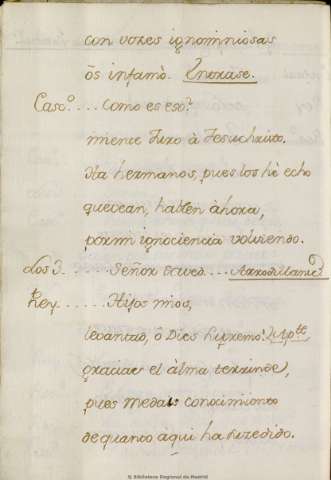 con vozes ignominiosas
ôs infamò. Entrase.
Casº. ... Como es eso?
miente Juro à Jesuchristo.
Ha hermanos, pues los hè echo
que vean, hablen àhora,
por mi ignociencia volviendo.
Los 3. ... Señor ... Arrodillanse
Rey ...... Hijos mios,
levantad, ô Dios supremo! Apte
gracias el àlma te rinde,
pues me dais conocimiento
de quanto àqui ha suzedido.
© Biblioteca Regional de Madrid